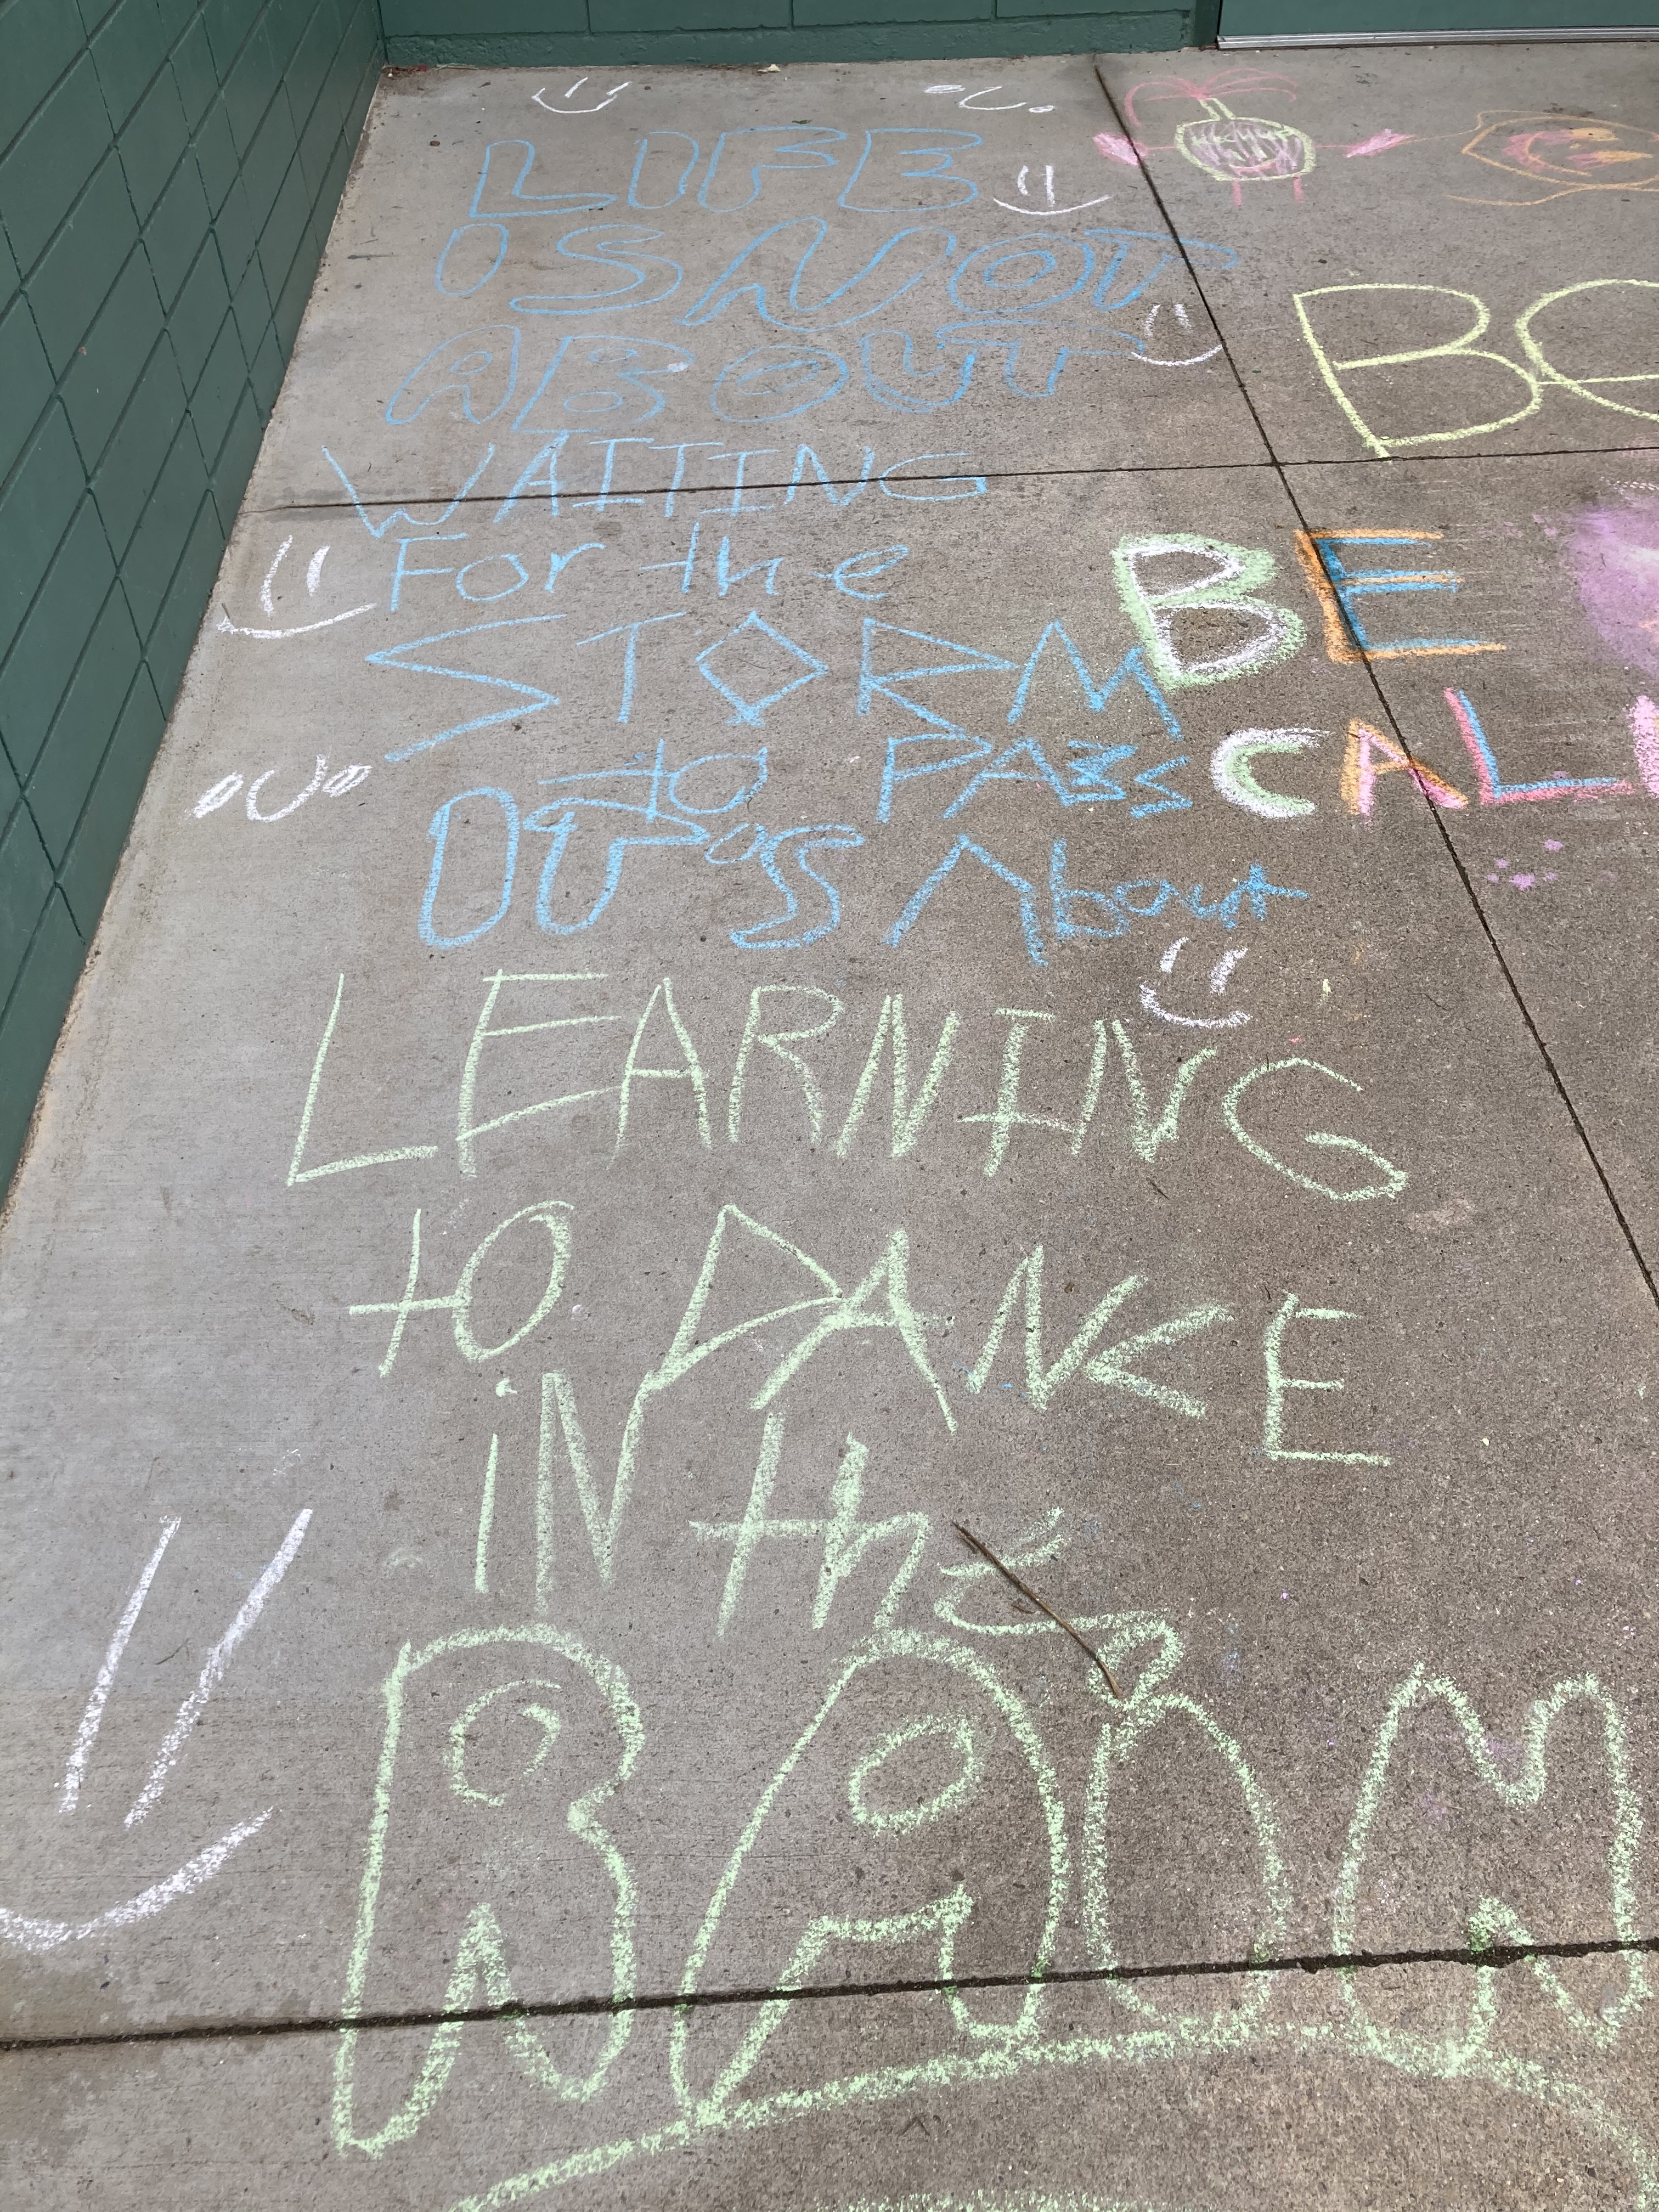 LIFE
IS NOT
ABOUT
WAITING
For the
STORM
to PASS
IT'S About
LEARNING
to DANCE
iN the
RAiN
BE
CALM